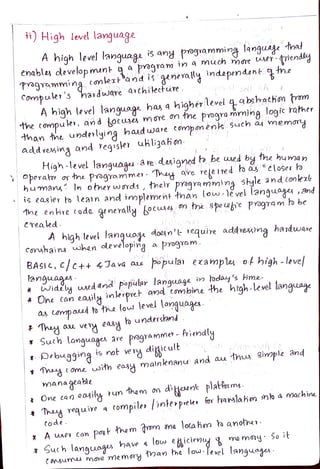 ii) High level language
A high level language is any programming language that
enables development of a program in a much more user-friendly
programming context and is generally independent of the
computer's hardware architecture.
A high level language has a higher level of abstraction from
the computer, and focuses more on the programming logic rather
than the underlying hardware components such as memory
addressing and register utilization.
High-level languages are designed to be used by the human
operator or the programmer. They are referred to as "closer to
humans." In other words, their programming style and context
is easier to learn and implement than low-level languages, and
the entire code generally focuses on the specific program to be
created.
A high level language doesn't require addressing hardware
constrains when developing a program.
BASIC, C/C++ & Java are popular examples of high-level
languages.
* Widely used and popular language in today's time.
* One can easily interpret and combine the high-level language
as compared to the low level languages.
* They are very easy to understand.
* Such languages are programmer-friendly
* Debugging is not very difficult
* They come with easy maintenance and are thus simple and
manageable
* One can easily run them on different platforms.
* They require a compiler/interpreter for translation into a machine
code.
* A user can port them from one location to another.
* Such languages have a low efficiency of memory. So it
consumes more memory than the low-level languages.